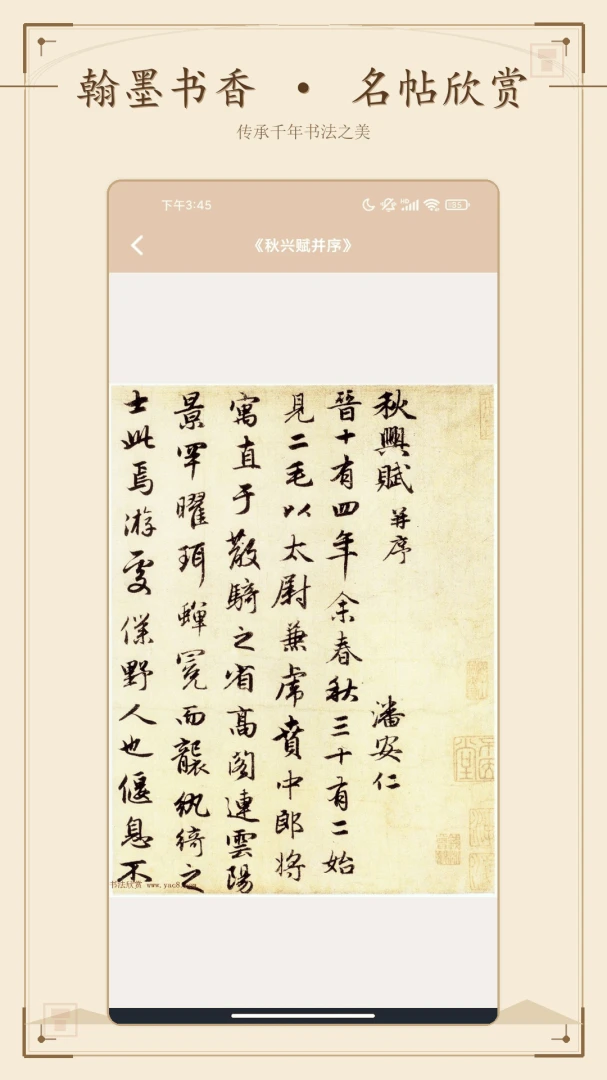 翰墨书香 • 名帖欣赏
传承千年书法之美
下午3:45
35
《秋兴赋并序》
秋興賦 并序 潘安仁
晉十有四年余春秋三十有二始
見二毛以太尉兼虎賁中郎将
寓直于散騎之省高阁連雲陽
景罕曜珥蟬冕而襲紈綺之
士此焉游處僕野人也偃息不
书法欣赏 www.yac8.com